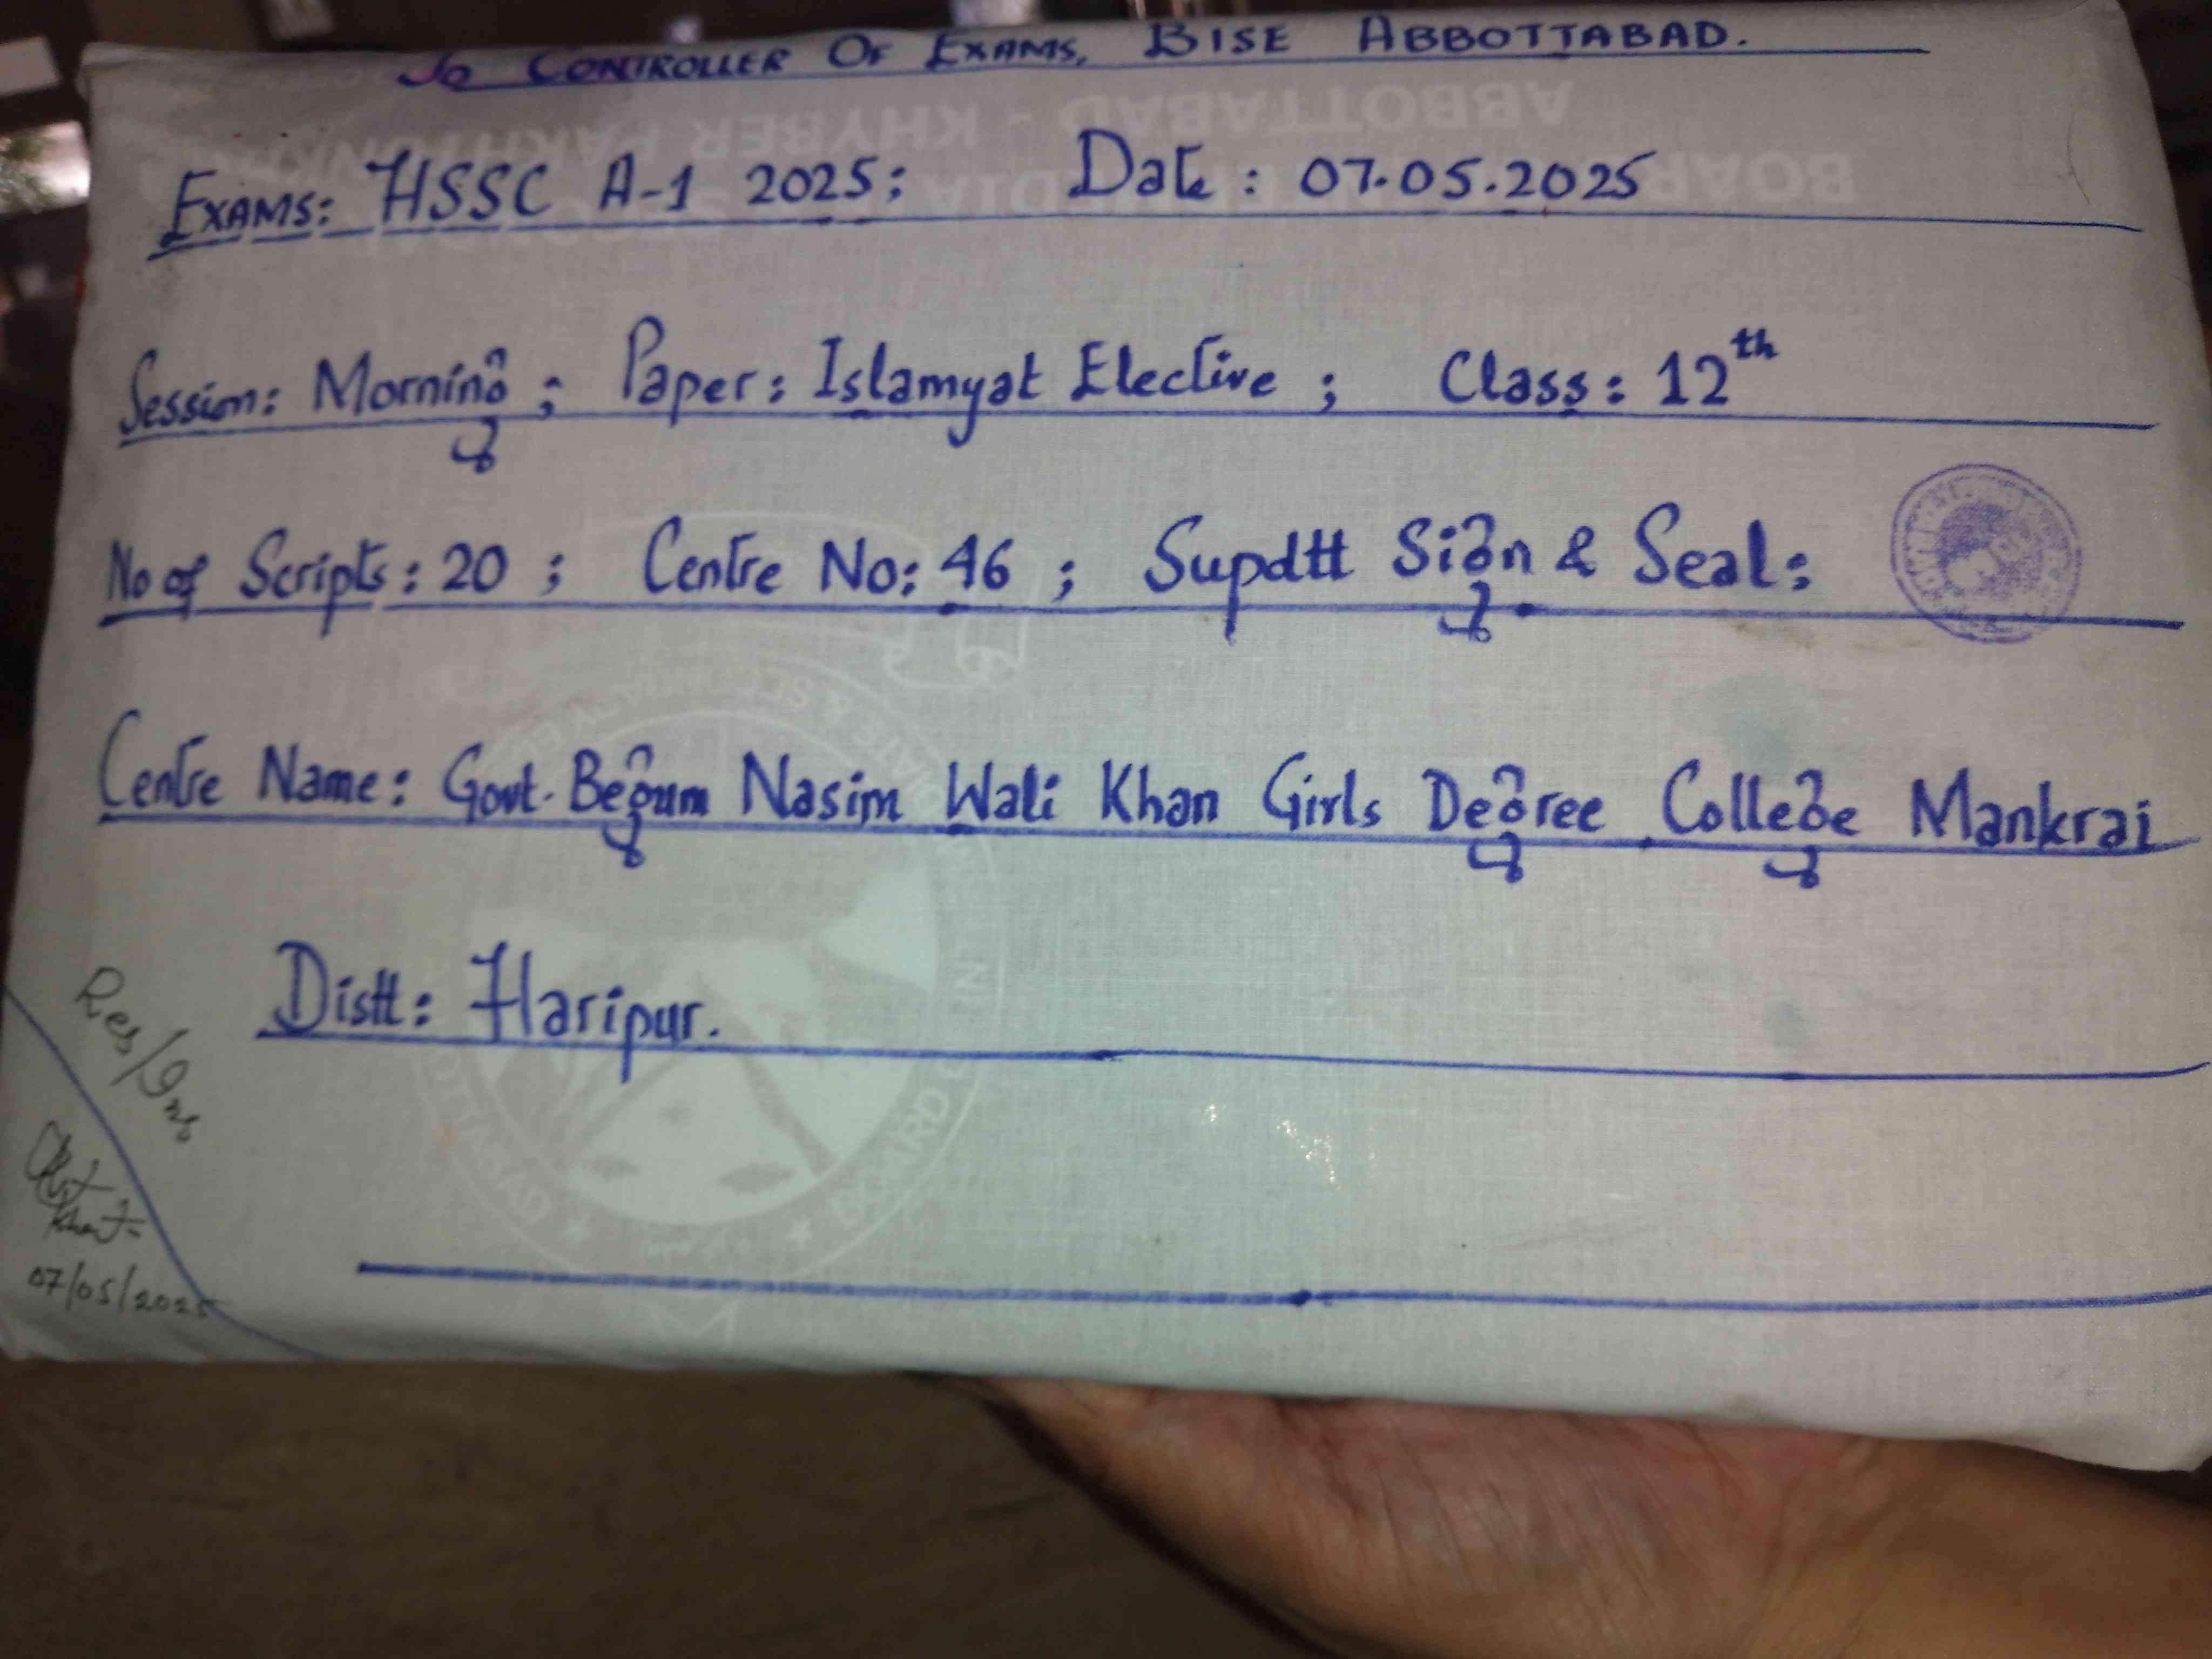 To Controller Of Exams, BISE ABBOTTABAD.
Exams: HSSC A-1 2025; Date: 07.05.2025
Session: Morning; Paper: Islamyat Elective; Class: 12th
No of Scripts: 20; Centre No: 46; Supdtt Sign & Seal:
Centre Name: Govt. Begum Nasim Wali Khan Girls Degree College Mankrai
Distt: Haripur.
07/05/2025
ABBOTTABAD - KHYBER PAKHTUNKHWA